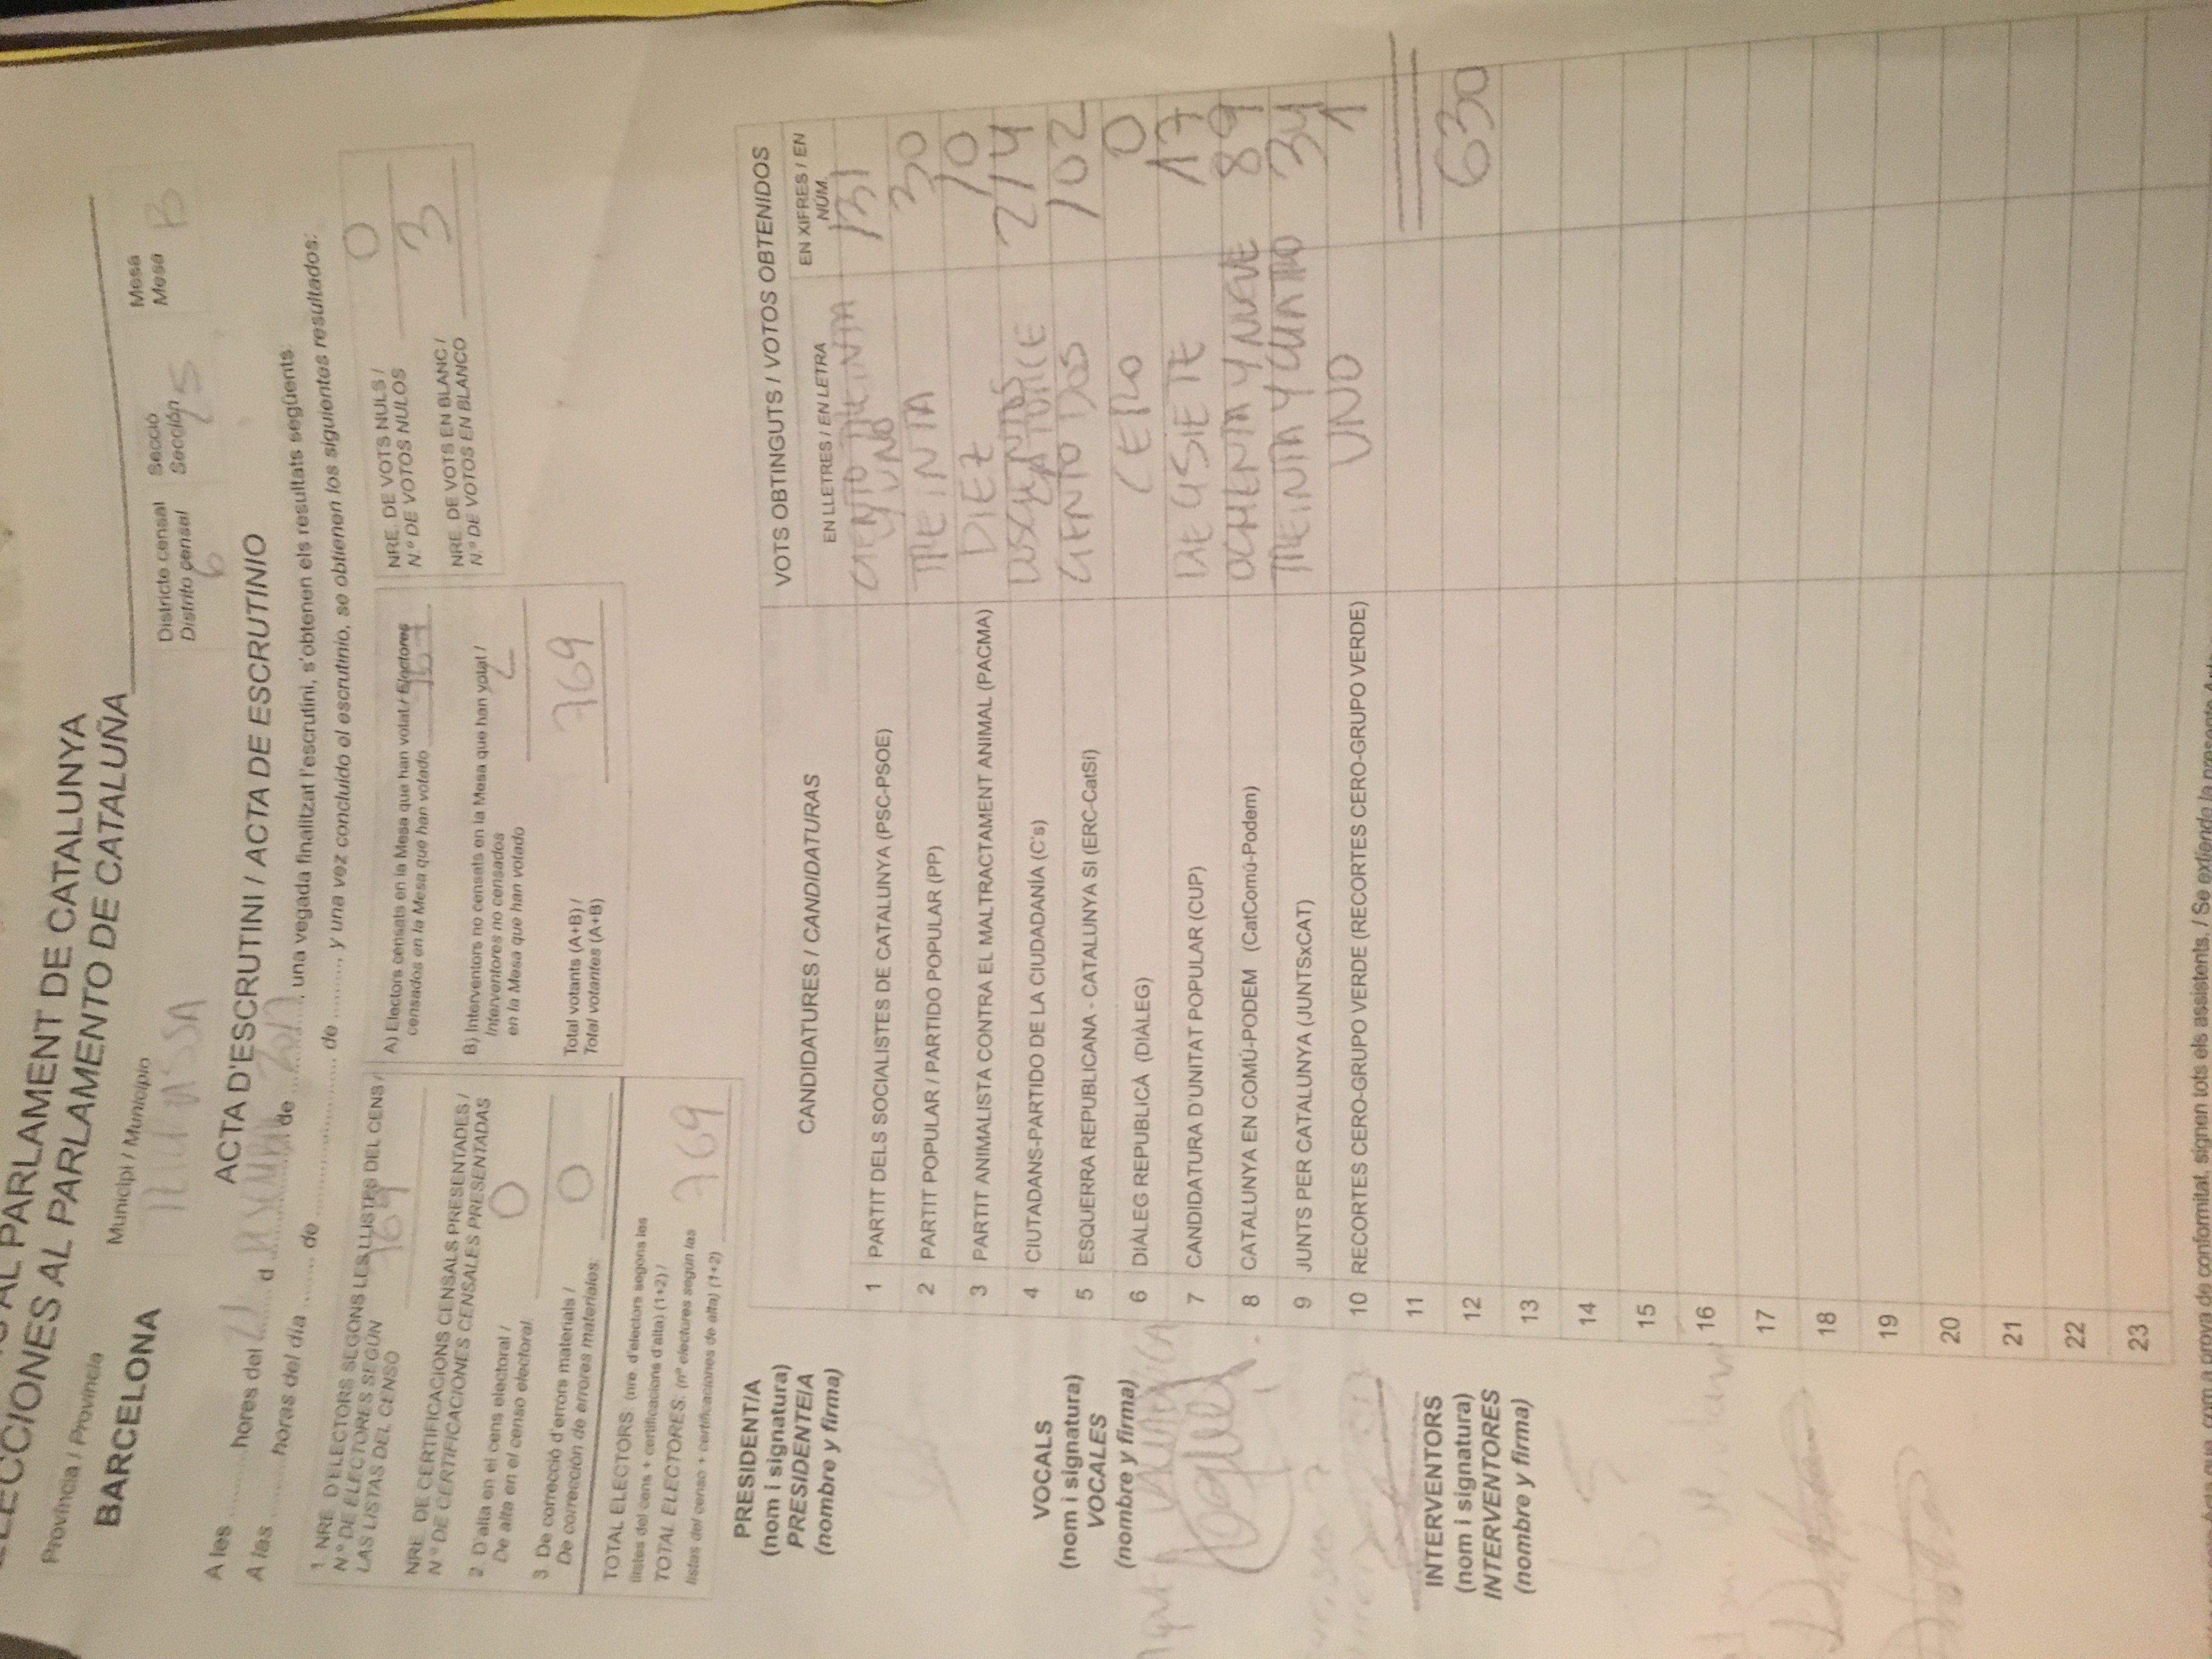 AL PARLAMENT DE CATALUNYA
ELECCIONES AL PARLAMENTO DE CATALUÑA
Província / Provincia
BARCELONA
Municipi / Municipio
Districte censal
Distrito censal
6
Secció
Sección
25
Mesa
Mesa
B
ACTA D'ESCRUTINI / ACTA DE ESCRUTINIO
A les .......... hores del 21 d ............... de 2017, una vegada finalitzat l'escrutini, s'obtenen els resultats següents:
A las .......... horas del día ....... de ...................... de ........, y una vez concluido el escrutinio, se obtienen los siguientes resultados:
1. NRE. D'ELECTORS SEGONS LES LLISTES DEL CENS /
N.º DE ELECTORES SEGÚN
LAS LISTAS DEL CENSO 769
NRE. DE CERTIFICACIONS CENSALS PRESENTADES /
N.º DE CERTIFICACIONES CENSALES PRESENTADAS
2. D'alta en el cens electoral /
De alta en el censo electoral: 0
3. De correcció d'errors materials /
De corrección de errores materiales: 0
TOTAL ELECTORS: (nre. d'electors segons les
llistes del cens + certificacions d'alta) (1+2) /
TOTAL ELECTORES: (nº electores según las
listas del censo + certificaciones de alta) (1+2) 769
A) Electors censats en la Mesa que han votat / Electores
censados en la Mesa que han votado 767
B) Interventors no censats en la Mesa que han votat /
Interventores no censados
en la Mesa que han votado 2
Total votants (A+B) /
Total votantes (A+B) 769
NRE. DE VOTS NULS /
N.º DE VOTOS NULOS 0
NRE. DE VOTS EN BLANC /
N.º DE VOTOS EN BLANCO 3
PRESIDENT/A
(nom i signatura)
PRESIDENTE/A
(nombre y firma)
VOCALS
(nom i signatura)
VOCALES
(nombre y firma)
INTERVENTORS
(nom i signatura)
INTERVENTORES
(nombre y firma)
CANDIDATURES / CANDIDATURAS
VOTS OBTINGUTS / VOTOS OBTENIDOS
EN LLETRES / EN LETRA
EN XIFRES / EN
NÚM.
1 PARTIT DELS SOCIALISTES DE CATALUNYA (PSC-PSOE) CIENTO TREINTA Y UNO 131
2 PARTIT POPULAR / PARTIDO POPULAR (PP) TREINTA 30
3 PARTIT ANIMALISTA CONTRA EL MALTRACTAMENT ANIMAL (PACMA) DIEZ 10
4 CIUTADANS-PARTIDO DE LA CIUDADANÍA (C's) DOSCIENTOS CATORCE 214
5 ESQUERRA REPUBLICANA - CATALUNYA SI (ERC-CatSí) CIENTO DOS 102
6 DIÀLEG REPUBLICÀ (DIÀLEG) CERO 0
7 CANDIDATURA D'UNITAT POPULAR (CUP) DIECISIETE 17
8 CATALUNYA EN COMÚ-PODEM (CatComú-Podem) OCHENTA Y NUEVE 89
9 JUNTS PER CATALUNYA (JUNTSxCAT) TREINTA Y CUATRO 34
10 RECORTES CERO-GRUPO VERDE (RECORTES CERO-GRUPO VERDE) UNO 1
11
12 630
13
14
15
16
17
18
19
20
21
22
23
que, com a prova de conformitat, signen tots els assistents. / Se extiende la presente